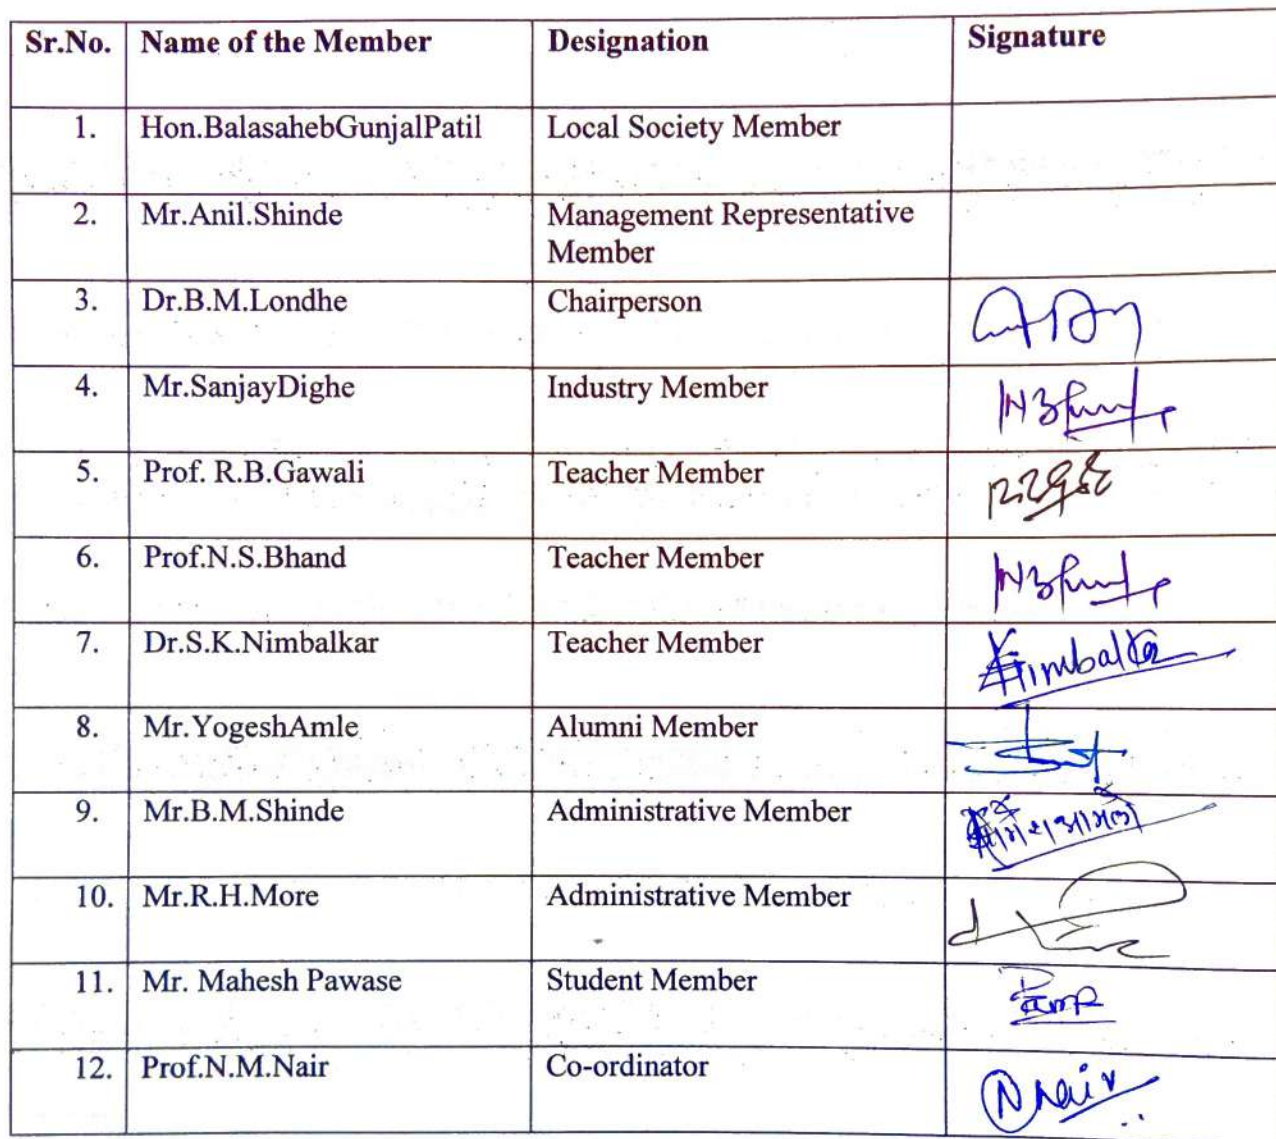 Sr.No. Name of the Member Designation Signature
1. Hon.BalasahebGunjalPatil Local Society Member
2. Mr.Anil.Shinde Management Representative
Member
3. Dr.B.M.Londhe Chairperson
4. Mr.SanjayDighe Industry Member
5. Prof. R.B.Gawali Teacher Member
6. Prof.N.S.Bhand Teacher Member
7. Dr.S.K.Nimbalkar Teacher Member
8. Mr.YogeshAmle Alumni Member
9. Mr.B.M.Shinde Administrative Member
10. Mr.R.H.More Administrative Member
11. Mr. Mahesh Pawase Student Member
12. Prof.N.M.Nair Co-ordinator Nair